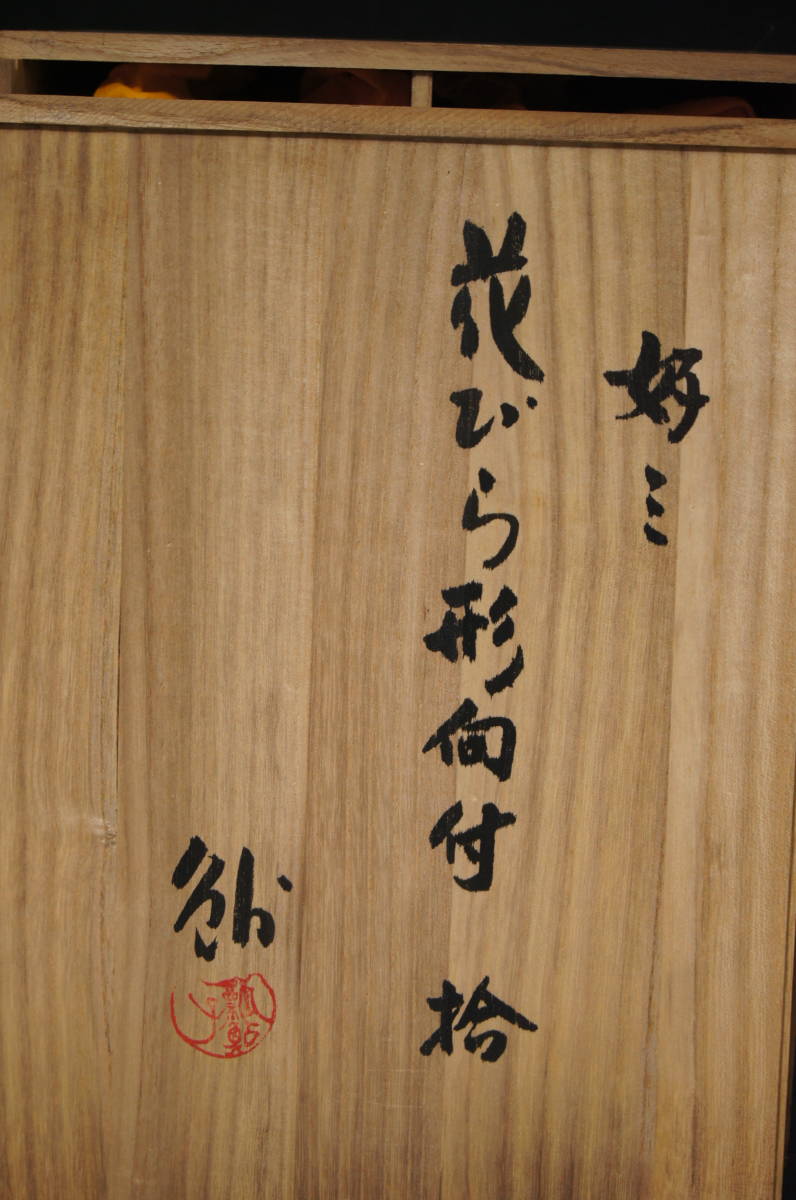 好ミ
花びら形向付 拾